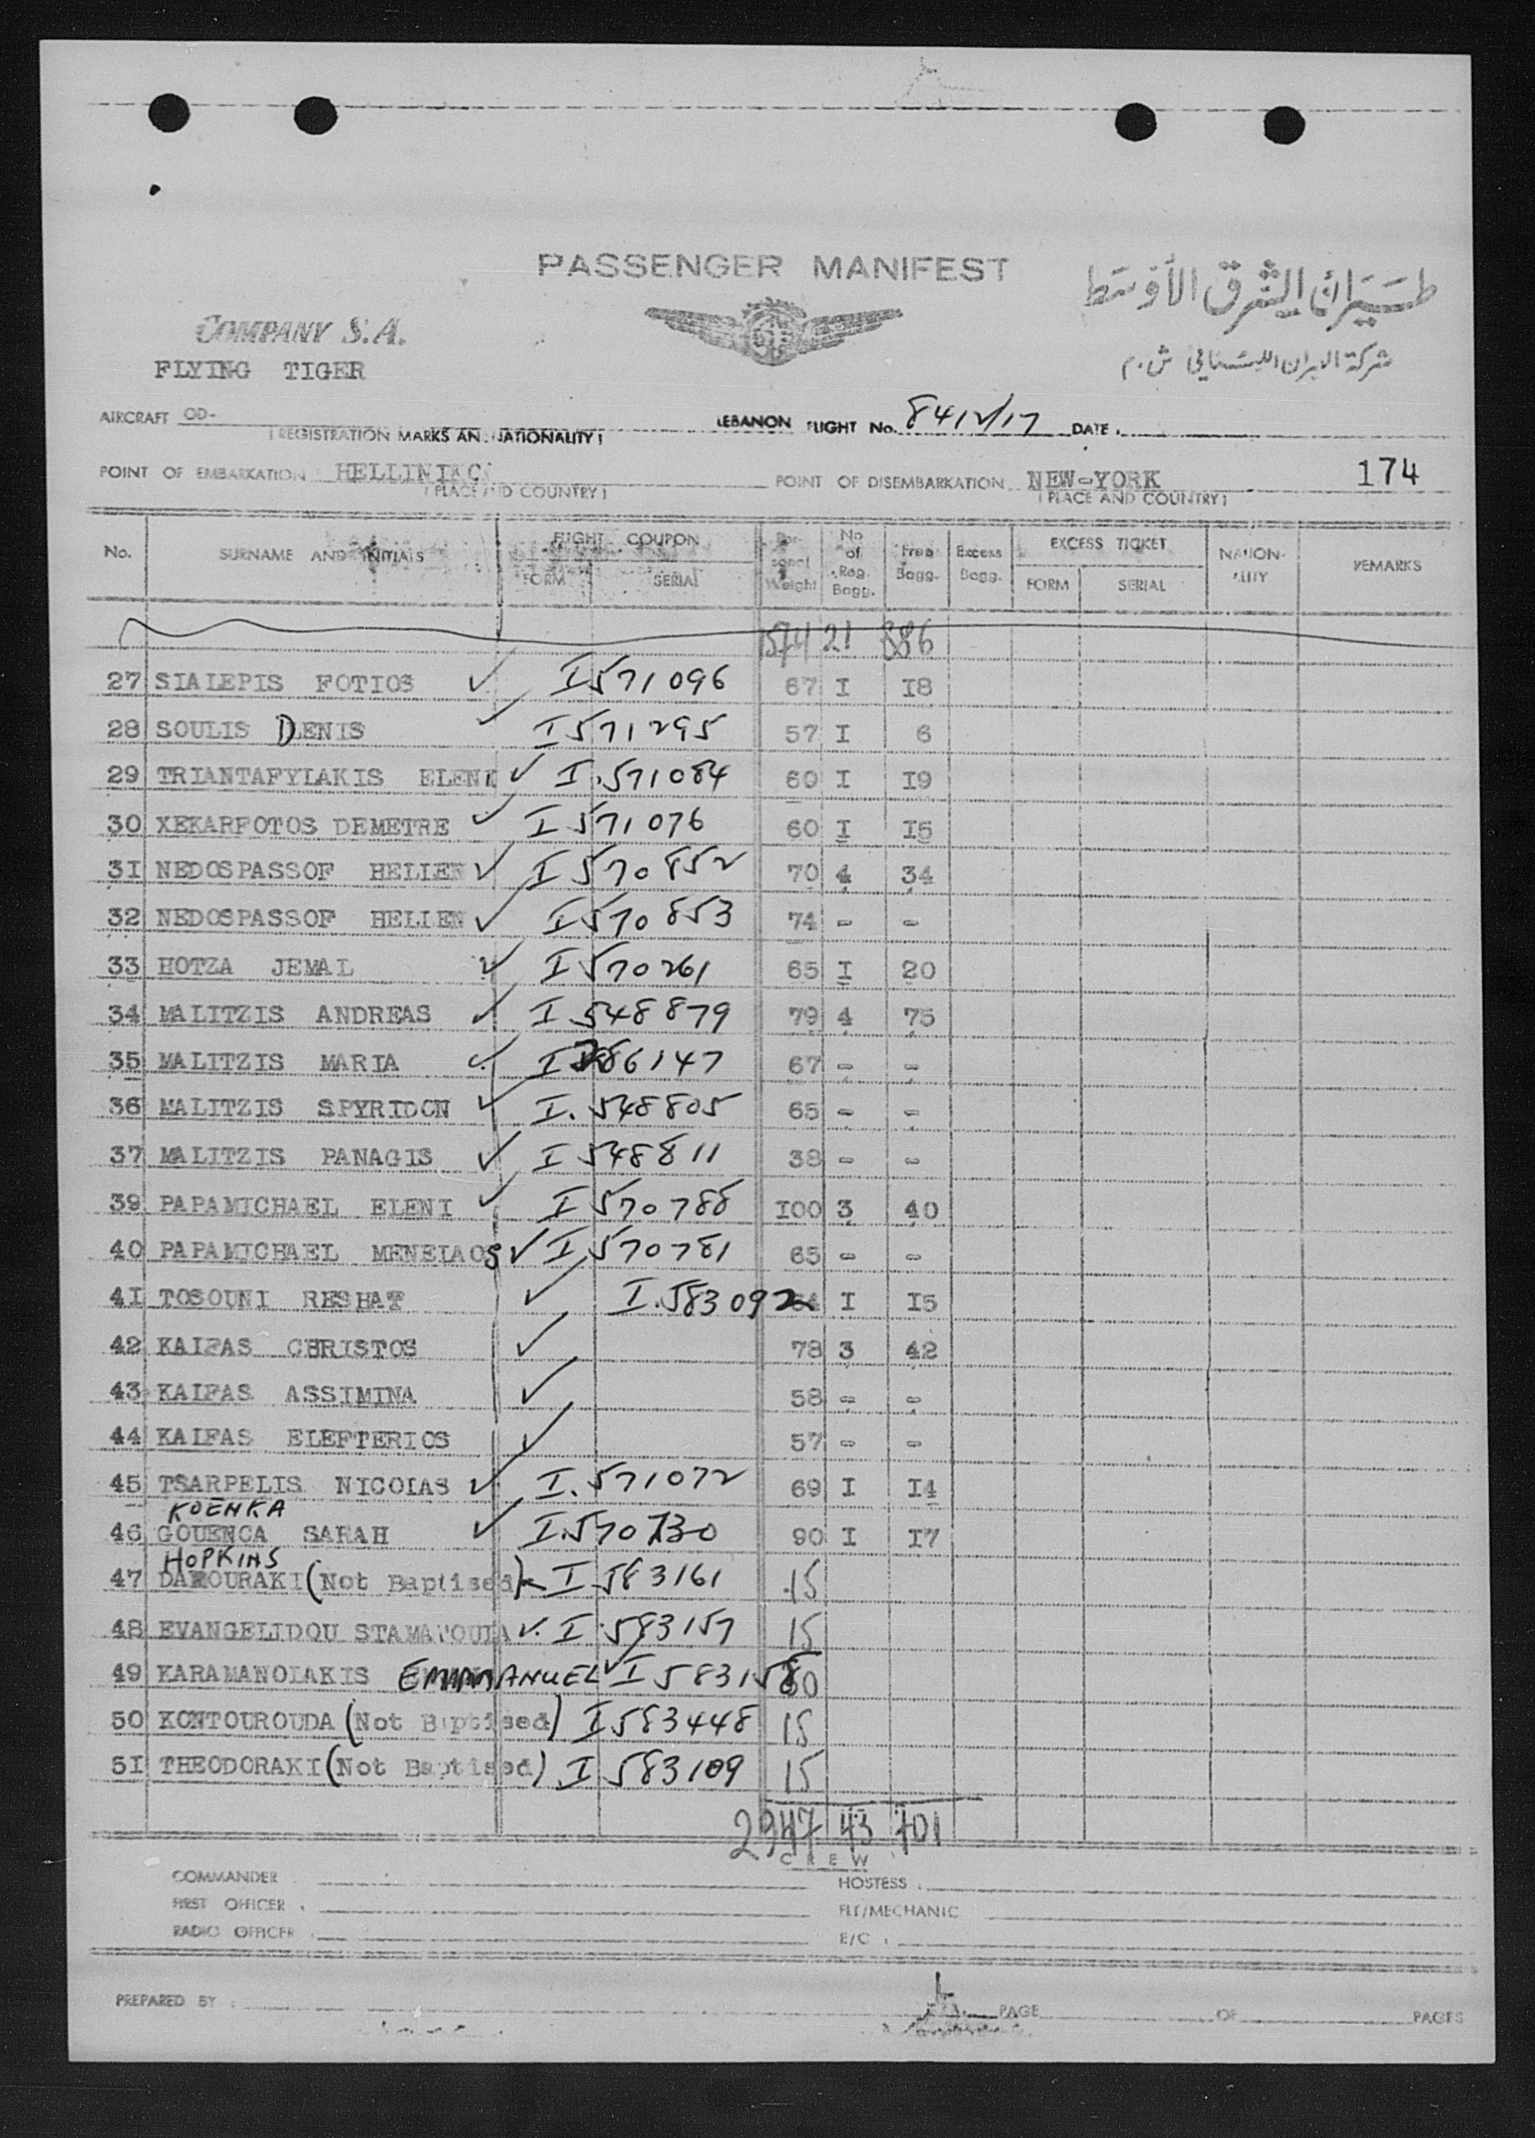 PASSENGER MANIFEST
طيران الشرق الأوسط
COMPANY S.A.
ش.م
FLYING TIGER
AIRCRAFT OD- LEBANON FLIGHT No. 8412/17 DATE
(REGISTRATION MARKS AN. NATIONALITY)
POINT OF EMBARKATION HELLINIKO POINT OF DISEMBARKATION NEW-YORK 174
(PLACE AND COUNTRY) (PLACE AND COUNTRY)
No. SURNAME AND INITIALS FLIGHT COUPON FORM SERIAL Personal Weight No of Reg. Bagg. Free Bagg. Excess Bagg. EXCESS TICKET FORM SERIAL NATIONALITY REMARKS
1574 21 386
27 SIALEPIS FOTIOS ✓ I 571096 67 I I8
28 SOULIS DENIS ✓ I 571295 57 I 6
29 TRIANTAFYLAKIS ELENI ✓ I.571084 60 I I9
30 XEKARFOTOS DEMETRE ✓ I 571076 60 I I5
3I NEDOSPASSOF HELLEN ✓ I 570852 70 4 34
32 NEDOSPASSOF HELLEN ✓ I 570853 74 - -
33 HOTZA JEMAL ✓ I 570261 65 I 20
34 MALITZIS ANDREAS ✓ I 548879 79 4 75
35 MALITZIS MARIA ✓ I 86147 67 - -
36 MALITZIS SPYRIDON ✓ I. 548805 65 - -
37 MALITZIS PANAGIS ✓ I 548811 38 - -
39 PAPAMICHAEL ELENI ✓ I 570788 I00 3 40
40 PAPAMICHAEL MENELAOS ✓ I 570781 65 - -
4I TOSOUNI RESHAT ✓ I.583092 64 I I5
42 KAIFAS CHRISTOS ✓ 78 3 42
43 KAIFAS ASSIMINA ✓ 58 - -
44 KAIFAS ELEFTERIOS ✓ 57 - -
45 TSARPELIS NICOLAS ✓ I.571072 69 I I4
KOENKA
46 GOUENCA SARAH ✓ I.570730 90 I I7
HOPKINS
47 DAMOURAKI (Not Baptised) I 583161 15
48 EVANGELIDOU STAMATOULA ✓ I 583157 15
49 KARAMANOLAKIS EMMANUEL ✓ I 583158 30
50 KONTOUROUDA (Not Baptised) I 583448 15
5I THEODORAKI (Not Baptised) I 583109 15
2947 43 701
CREW
COMMANDER HOSTESS
FIRST OFFICER FLT/MECHANIC
RADIO OFFICER E/C
PREPARED BY : PAGE OF PAGES